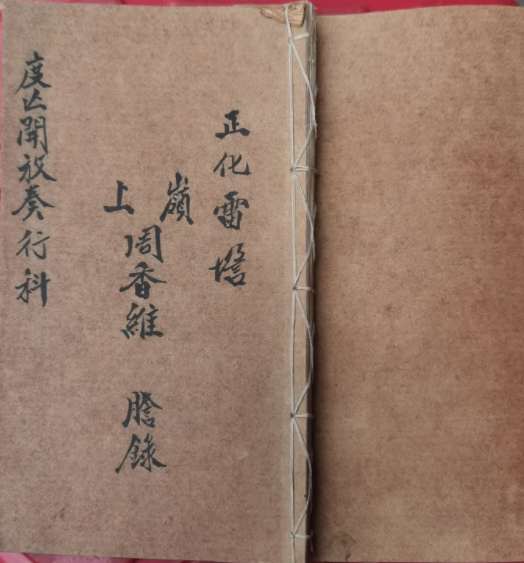 正化雷壇
嶺
上
周香維 謄錄
度亡開放奏行科